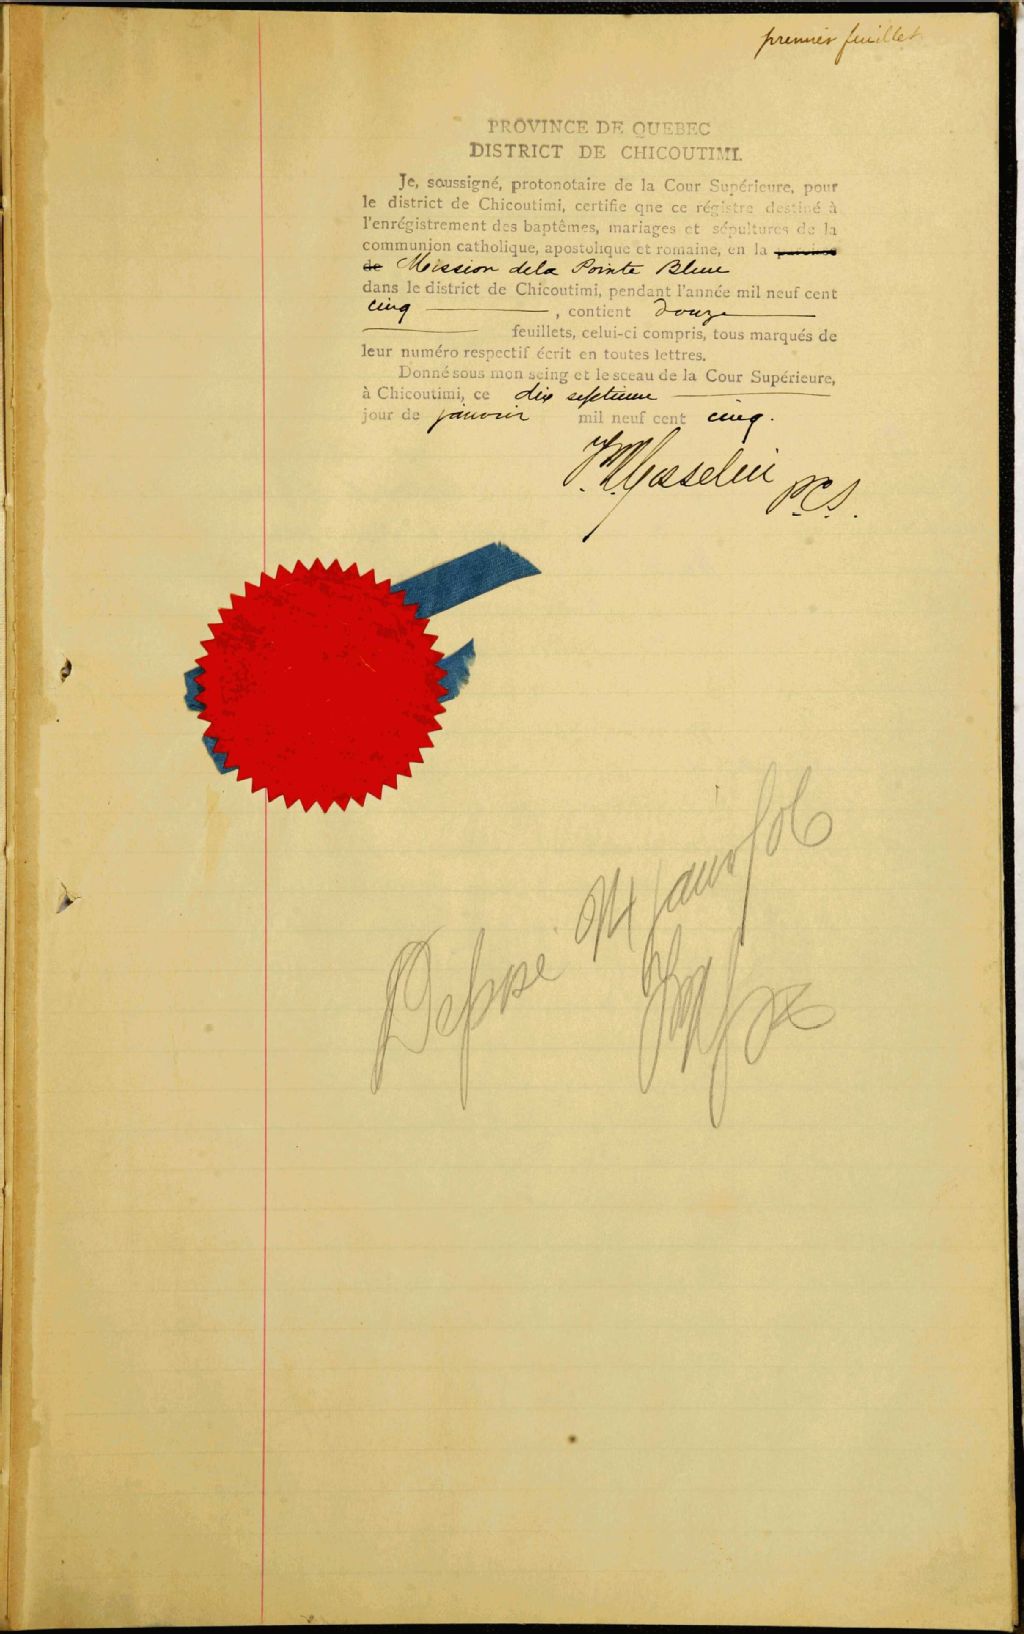 premier feuillet
PROVINCE DE QUEBEC
DISTRICT DE CHICOUTIMI.
Je, soussigné, protonotaire de la Cour Supérieure, pour
le district de Chicoutimi, certifie qne ce régistre destiné à
l'enrégistrement des baptêmes, mariages et sépultures de la
communion catholique, apostolique et romaine, en la paroisse
de Mission dela Pointe Bleue
dans le district de Chicoutimi, pendant l'année mil neuf cent
cinq, contient douze
feuillets, celui-ci compris, tous marqués de
leur numéro respectif écrit en toutes lettres.
Donné sous mon seing et le sceau de la Cour Supérieure,
à Chicoutimi, ce dix septieme
jour de janvier mil neuf cent cinq.
Gosselin P.C.S.
Déposé 24 janv